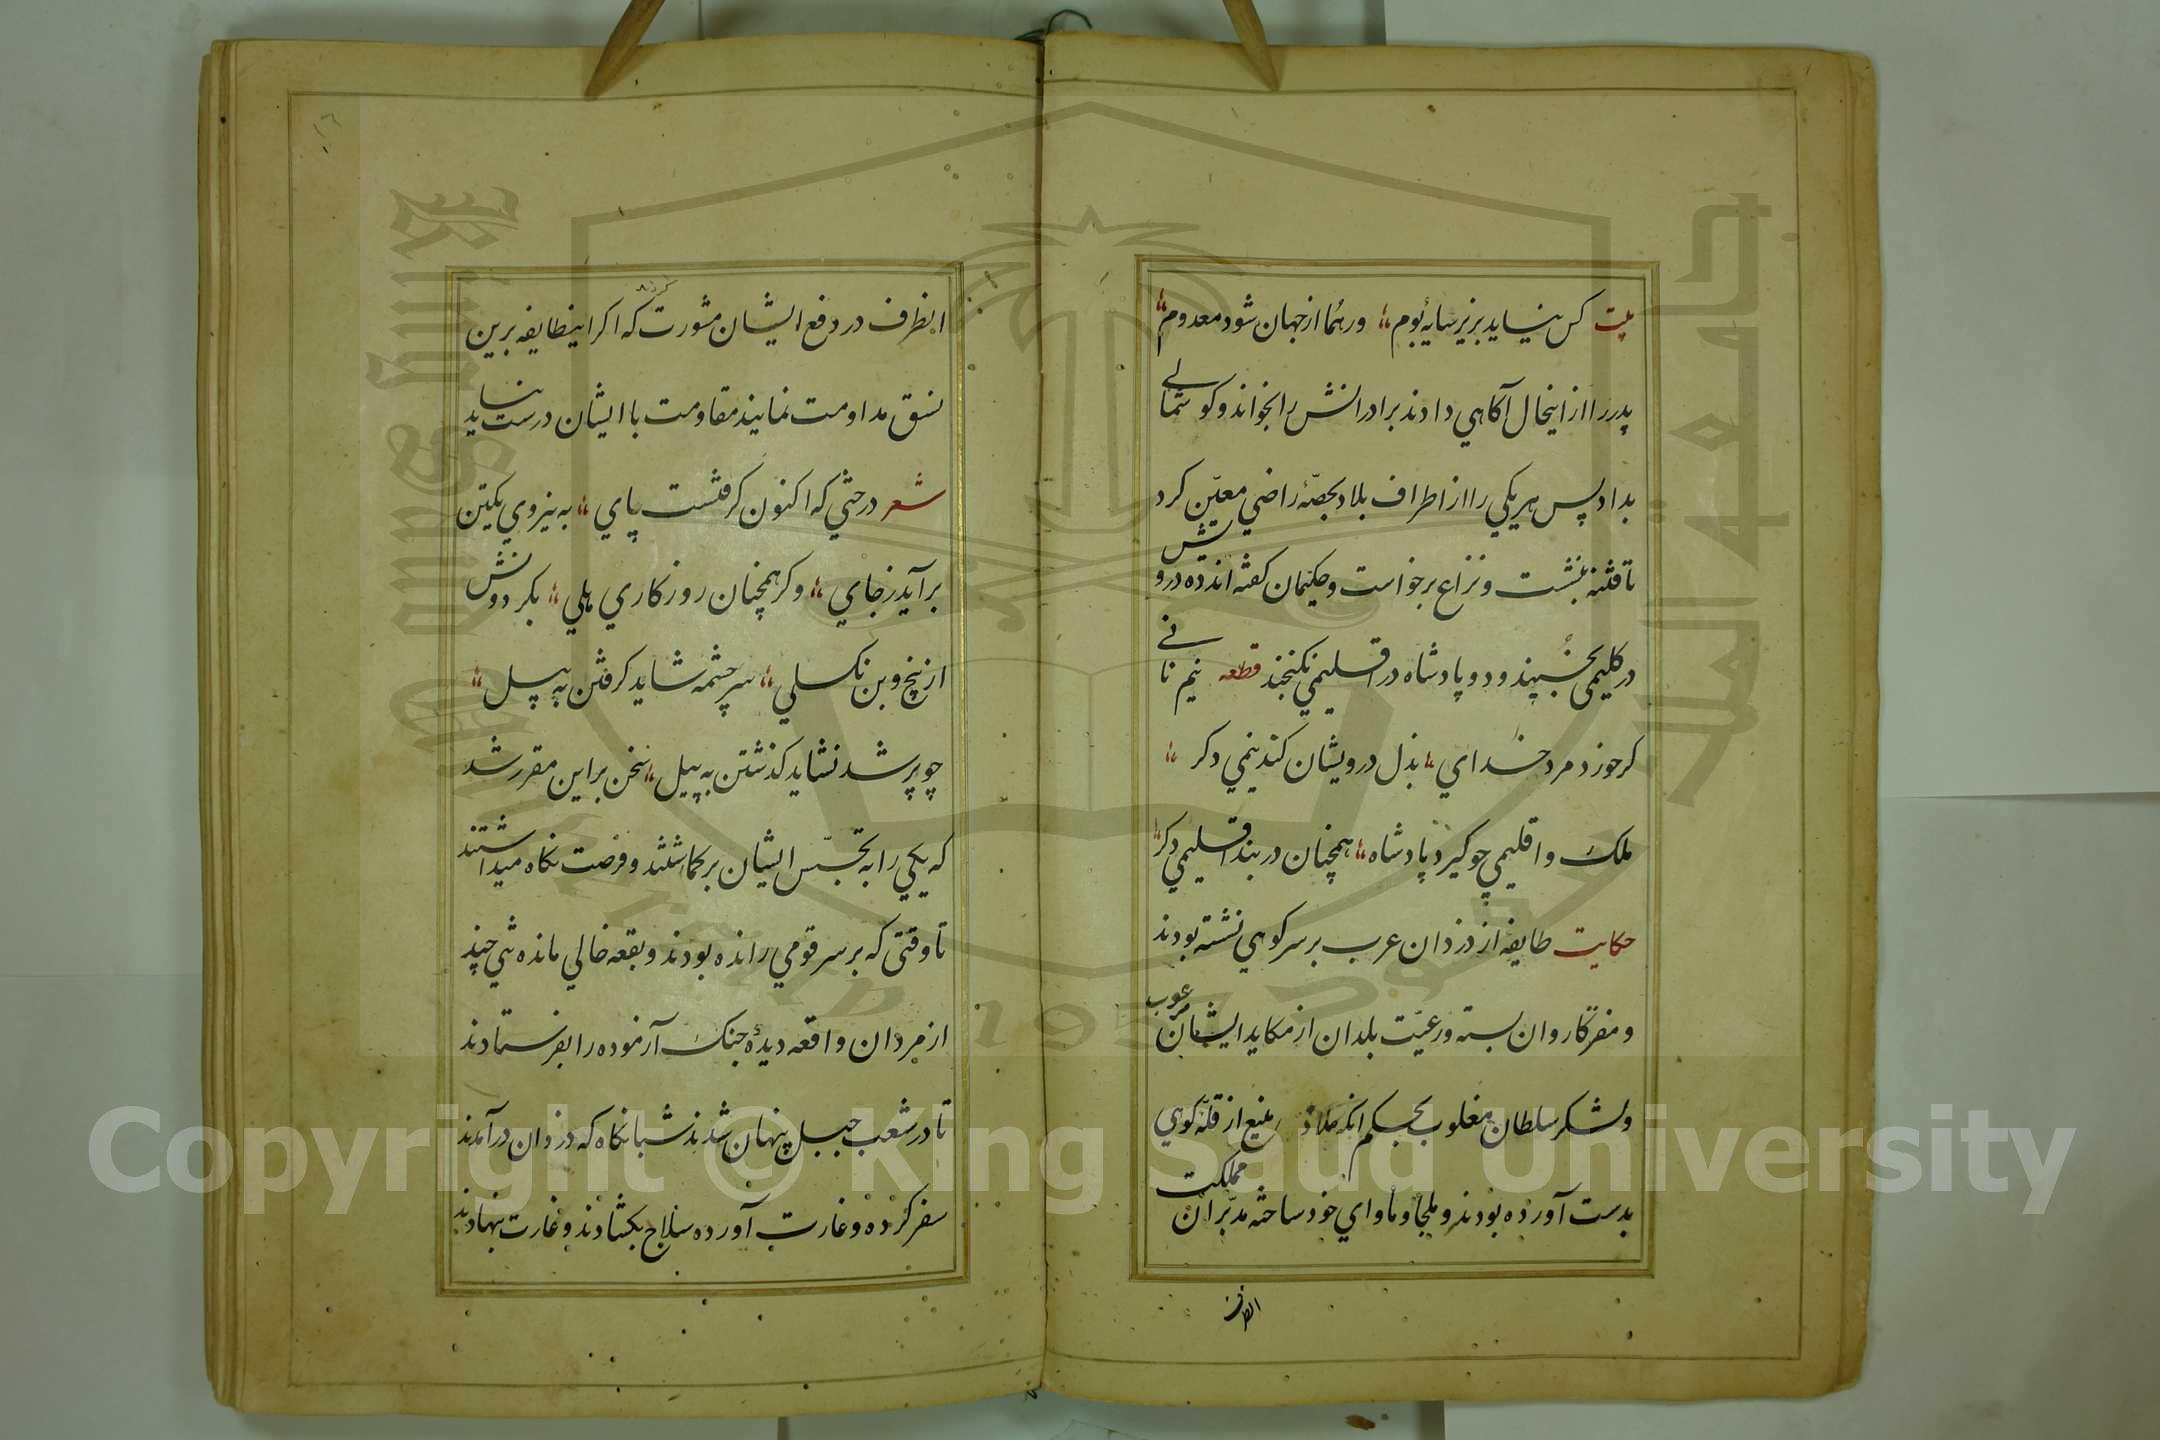 بیت کس نیاید بزیر سایۀ بوم ورهما از جهان شود معدوم
پدر را از اینحال آکاهي دادند برادرانش را بخواند و کوشمالے
بداد پس هر یکي را از اطراف بلاد بحصّۀ راضي معیّن کرد
تا فتنه بنشست و نزاع برخواست و حکیمان کفته اند ده درویش
در کلیمی بخسپند و دو پادشاه در اقلیمي نکنجند قطعه نیم نانے
کر خورد مرد خداي بذل درویشان کند نیمي دکر
ملک و اقلیمي چو کیرد پادشاه همچنان در بند اقلیمي دکر
حکایت طایفه از دزدان عرب بر سر کوهي نشسته بودند
و منفر کاروان بسته و رعیّت بلدان از مکاید ایشان مرعوب
و لشکر سلطان مغلوب بحکم انکه ملاذ منیع از قلّۀ کوهي
بدست آورده بودند و ملجا و ماواي خود ساخته مدبّران مملکت
انطرف
١٦
انطرف در دفع ایشان مشورت کردند که اکر اینطایفه برین
نسق مداومت نمایند مقاومت با ایشان درست نیاید
شعر درختي که اکنون کرفتست پاي به نیروي یکتن
برآید ز جاي و کر همچنان روزکاري هلي بکردونش
از بیخ و بن نکسلي سر چشمه شاید کرفتن به پیل
چو پر شد نشاید کذشتن به پیل سخن بر این مقرر شد
که یکي را به تجسّس ایشان برکماشتند و فرصت نکاه میداشتند
تا وقتی که بر سر قومي رانده بودند و بقعه خالي مانده تني چند
از مردان واقعه دیدۀ جنک آزموده را بفرستادند
تا در شعب جبل پنهان شدند شبانکاه که دزدان درآمدند
سفر کرده و غارت آورده سلاح بکشادند و غارت بنهادند
Copyright © King Saud University